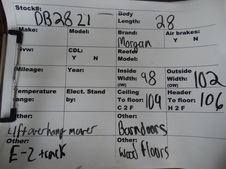 Stock#: DB2821
Body Length: 28
Make:
Model:
Brand: Morgan
Air brakes: Y N
GVW:
CDL: Y N
Reefer Model:
Mileage:
Year:
Inside Width: 98
Outside Width: 102
Temperature range:
Elect. Stand by:
Ceiling To floor: C 2 F 104
Header To floor: H 2 F 106
Other:
Other: Barndoors
Other: E-Z
Other: Wood floors